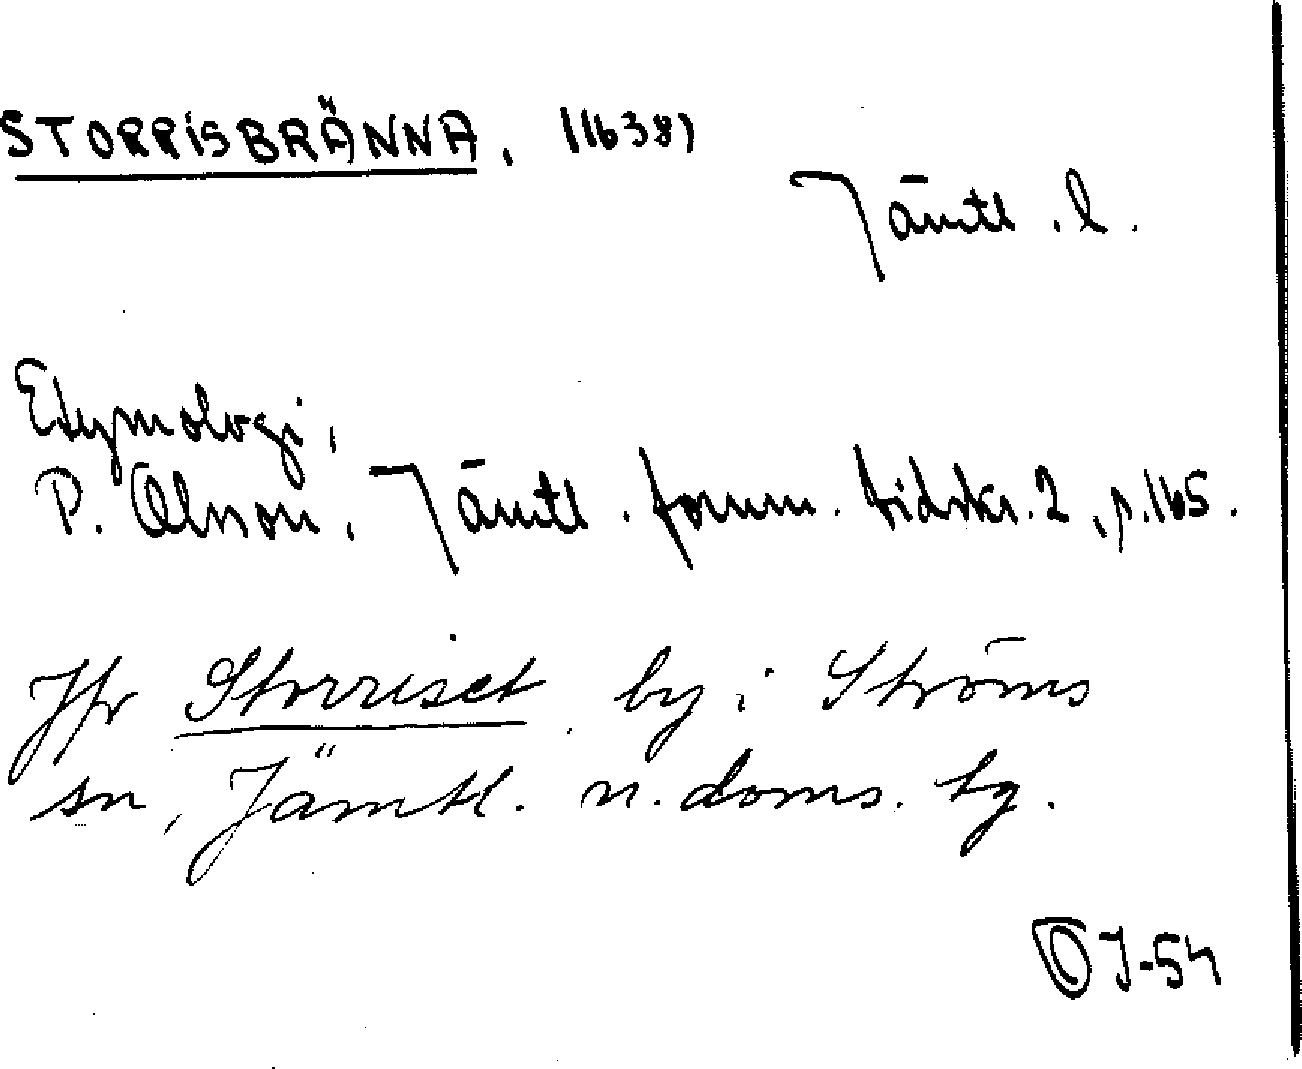 STORRISBRÄNNA, (1638)
Jämtl. l.
Etymologi,
P. Olsson, Jämtl. fornm. tidskr. 2, p. 165.
Jfr Storriset, by i Ströms
sn, Jämtl. n. doms. hg.
OJ-54